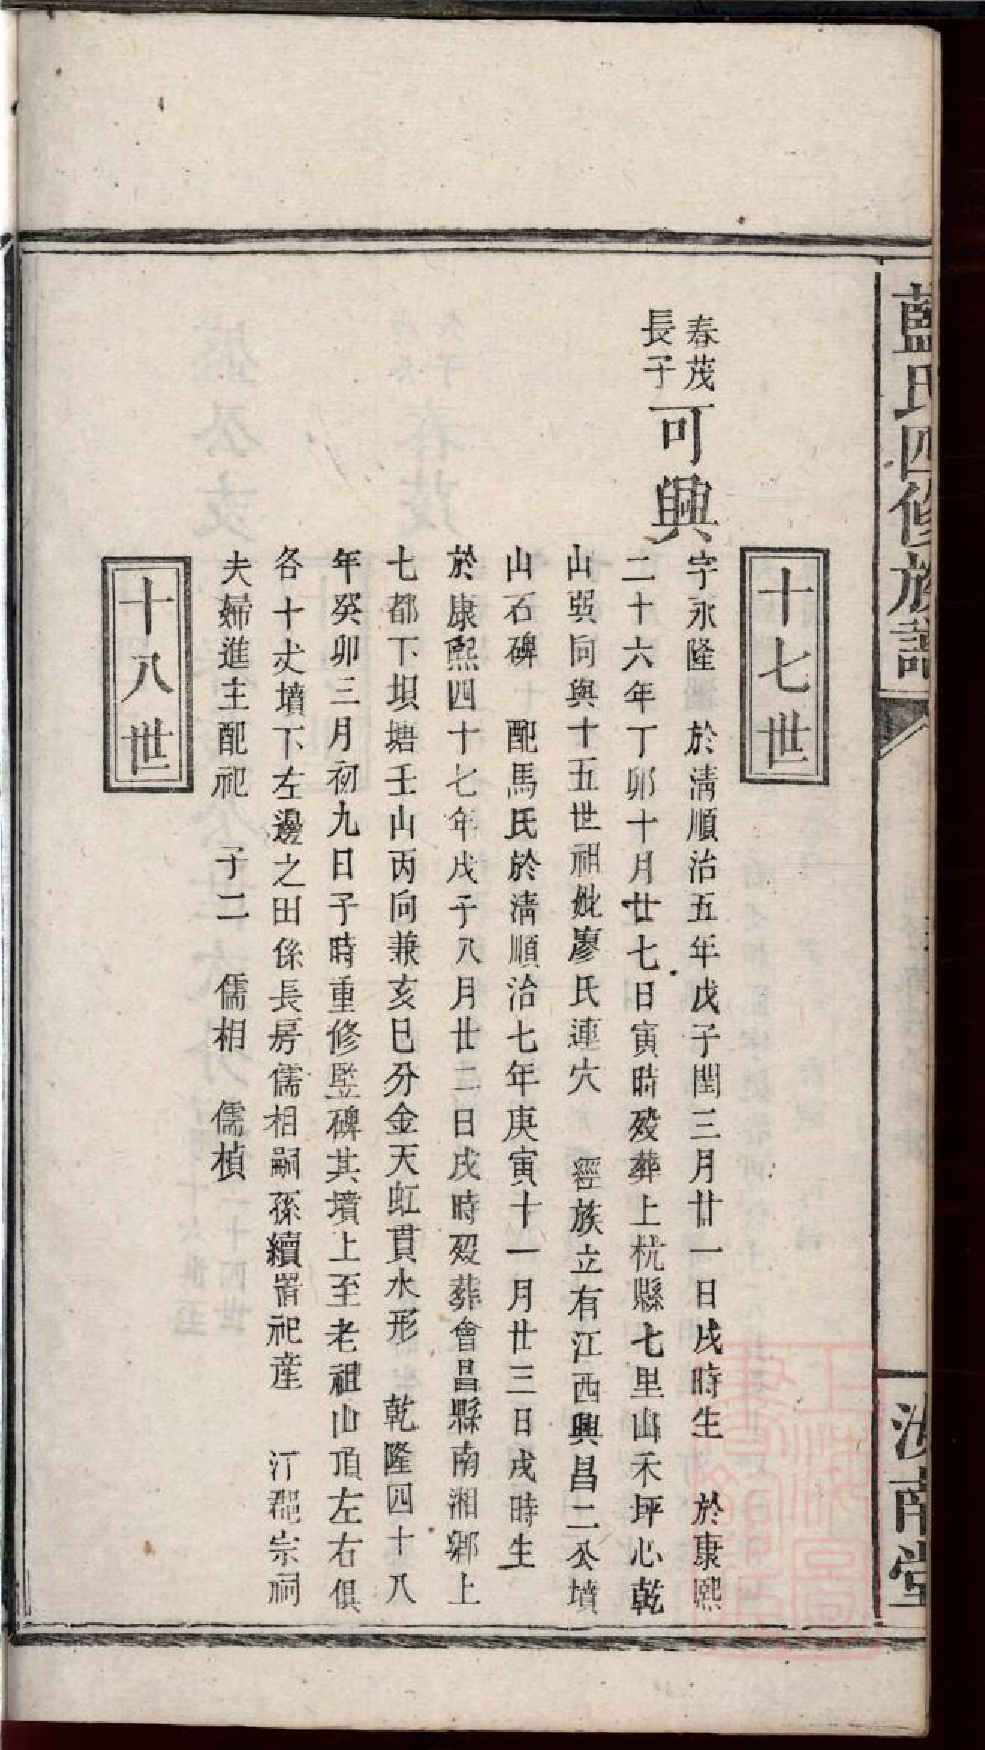 藍氏四修族譜
汝南堂
十七世
春茂
長子
可興
字永隆 於淸順治五年戊子閏三月廿一日戌時生 於康熙
二十六年丁卯十月廿七日寅時歿葬上杭縣七里山禾坪心乾
山巽向與十五世祖妣廖氏連穴 經族立有江西興昌二公墳
山石碑 配馬氏於淸順治七年庚寅十一月廿三日戌時生
於康熙四十七年戊子八月廿二日戌時歿葬會昌縣南湘鄉上
七都下坝塘壬山丙向兼亥巳分金天虹貫水形 乾隆四十八
年癸卯三月初九日子時重修監碑其墳上至老祖山頂左右俱
各十丈墳下左邊之田係長房儒相嗣孫續置祀産 汀郡宗祠
夫婦進主配祀 子二 儒相 儒楨
十八世